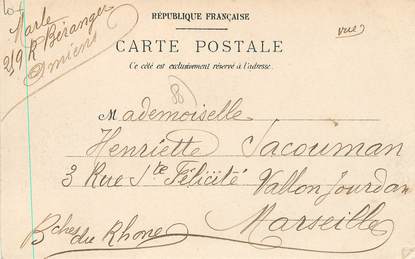 RÉPUBLIQUE FRANÇAISE
CARTE POSTALE
Ce côté est exclusivement réservé à l'adresse.
Marle
219 R Béranger
Amiens
vue
88
Mademoiselle
Henriette Jacouman
3 Rue Ste Félicité Vallon Jourdan
Marseille
Bches du Rhone